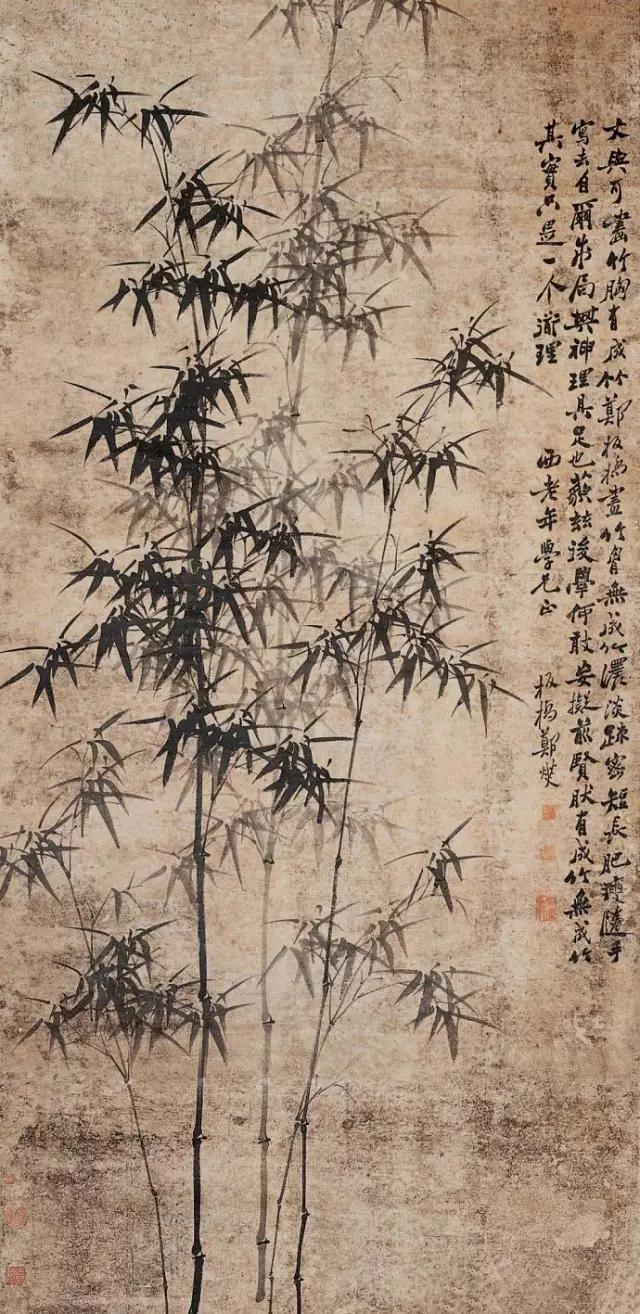 文與可畫竹胸有成竹鄭板橋畫竹胸無成竹濃淡疎密短長肥瘦隨手
寫去自爾成局其神理具足也藐茲後學何敢妄擬前賢肰有成竹無成竹
其實只是一个道理
西老年學兄正
板橋鄭燮